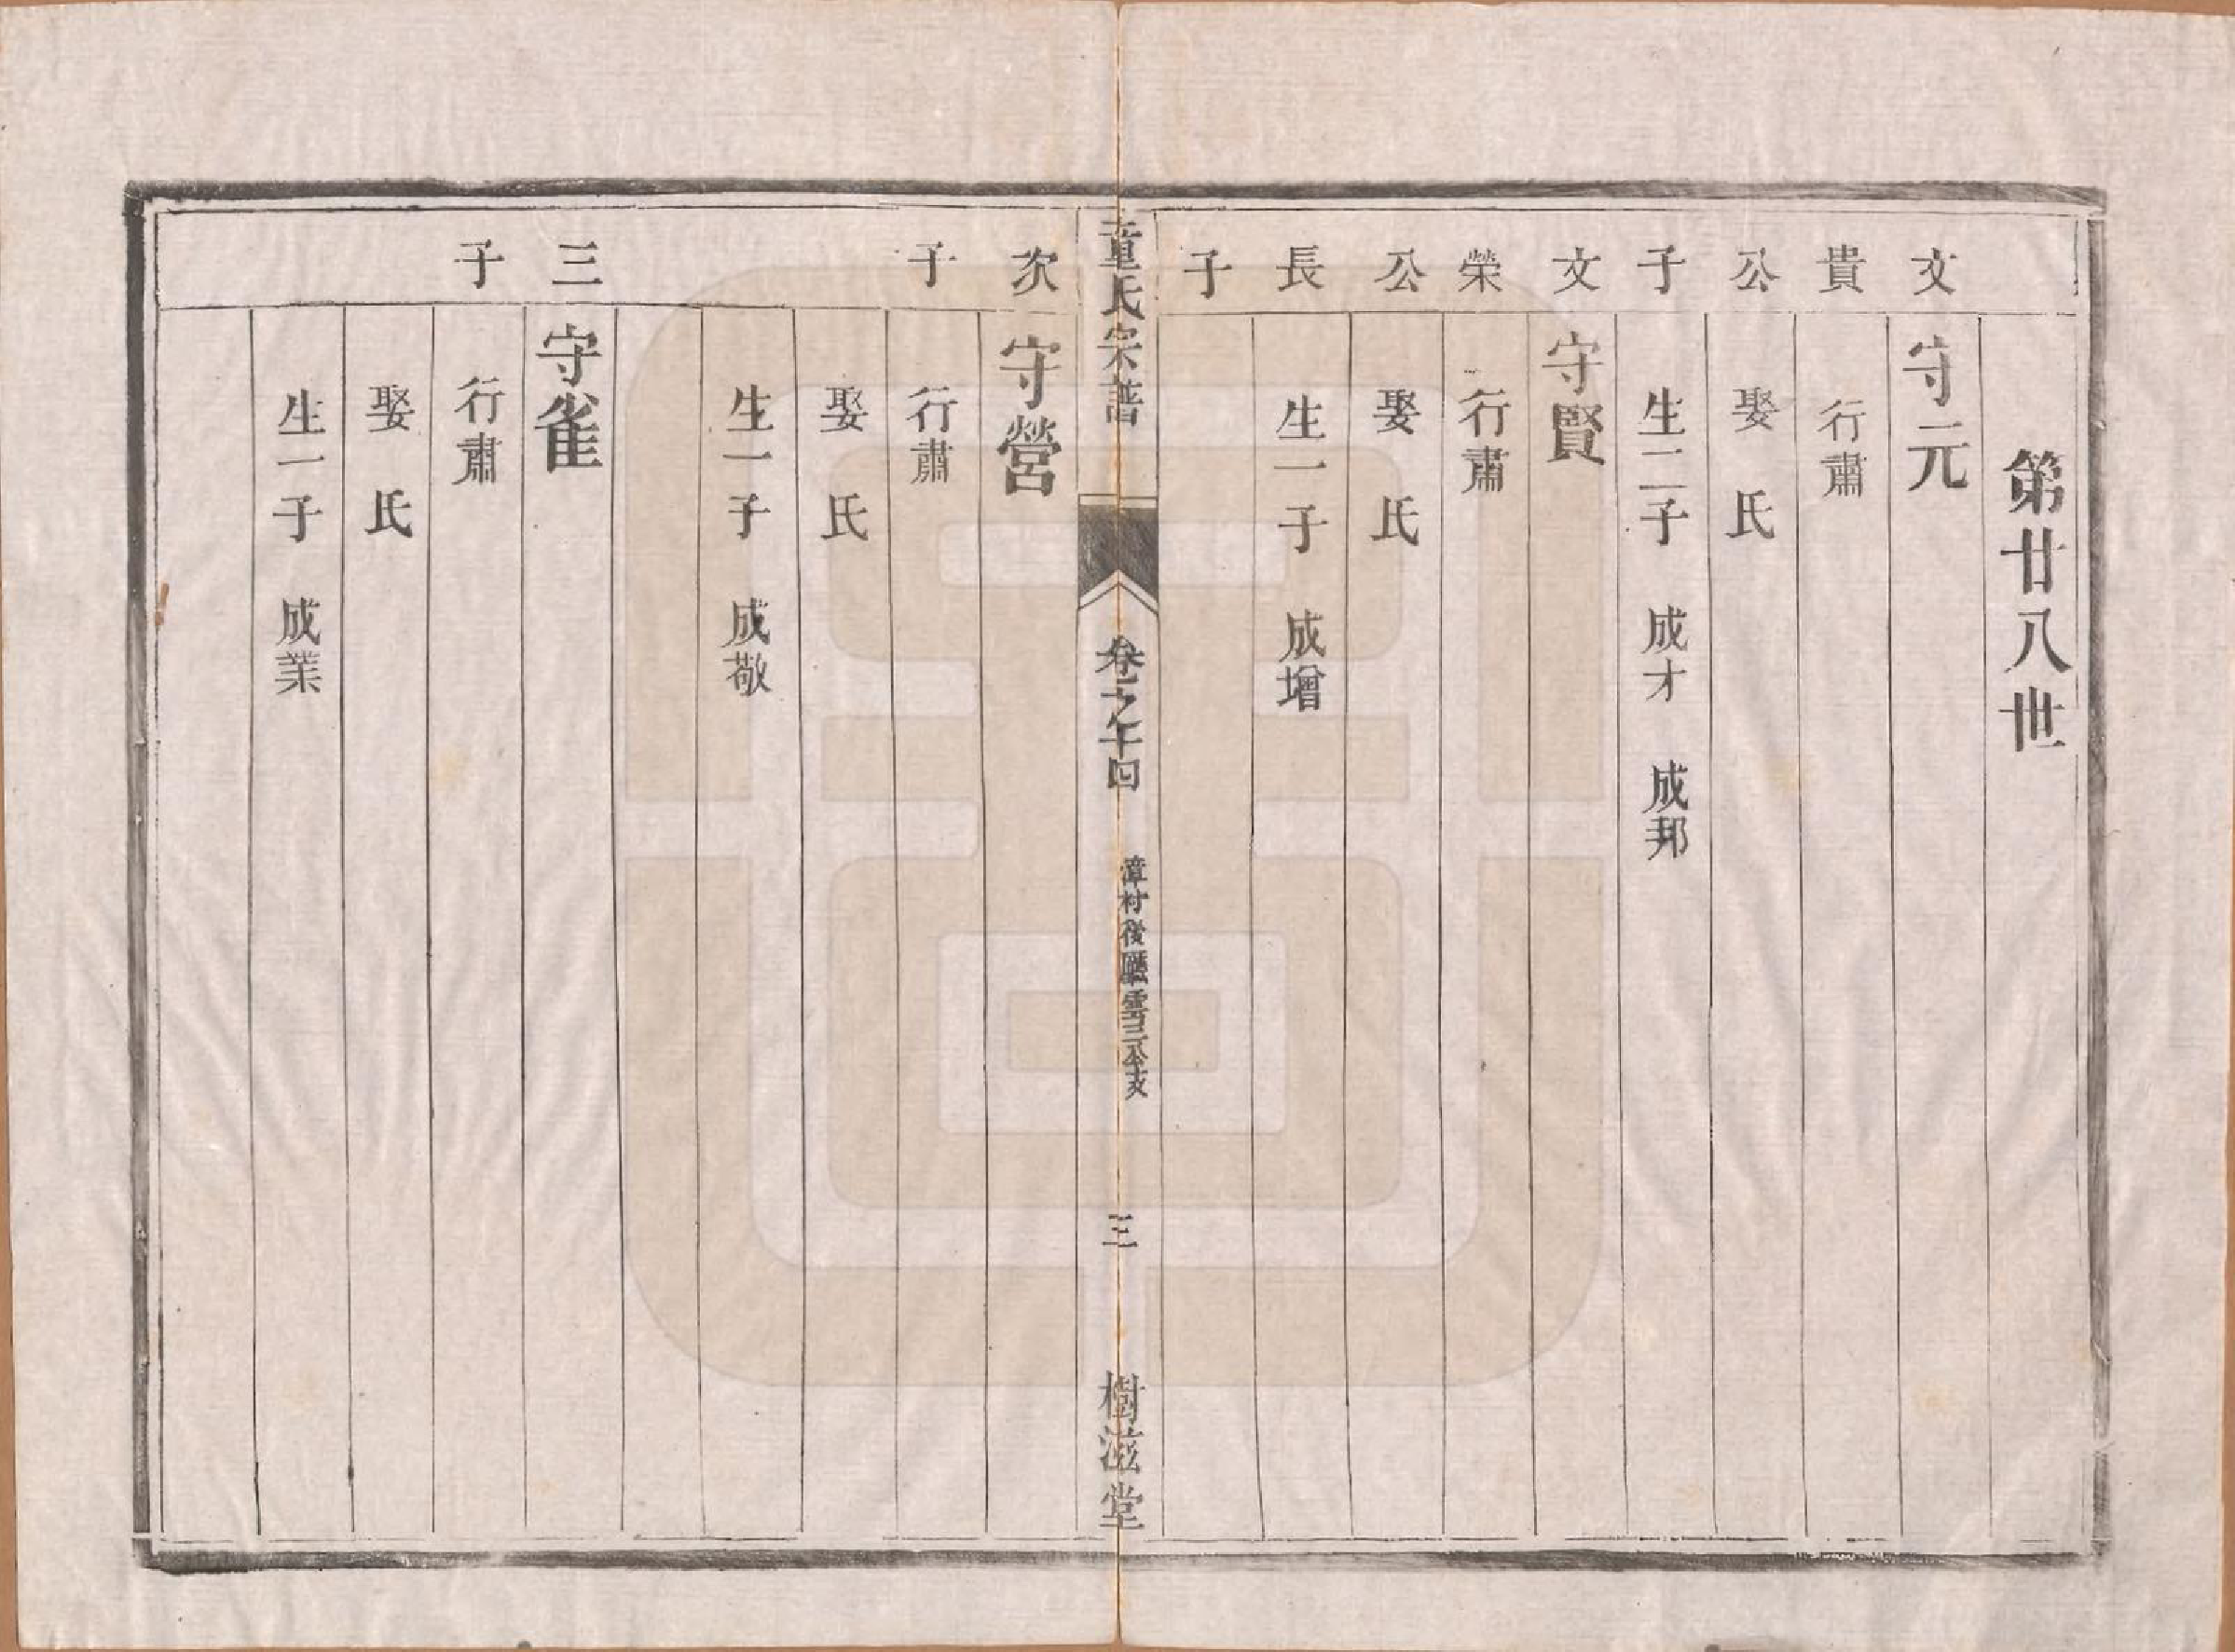 第廿八世
文貴公子
守元
行肅
娶　氏
生二子　成才　成邦
文榮公長子
守賢
行肅
娶　氏
生一子　成增
童氏宗譜
卷之十四
漳村後
雲三公支
三
樹滋堂
次子
守營
行肅
娶　氏
生一子　成敬
三子
守雀
行肅
娶　氏
生一子　成業